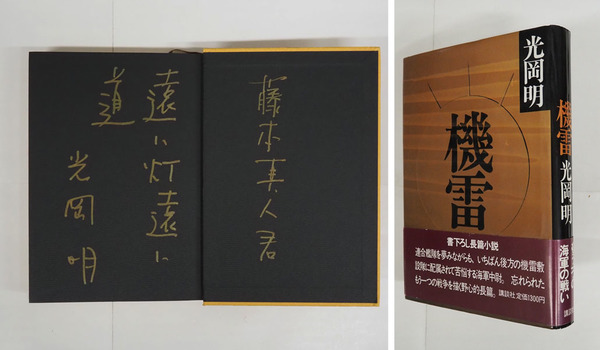 藤本真人君
遠い灯遠い
道
光岡明
光岡明
機雷
書下ろし長篇小説
連合艦隊を夢みながらも、いちばん後方の機雷敷
設隊に配属されて苦悩する海軍中尉。忘れられた
もう一つの戦争を描く野心的長篇。講談社 定価1300円
機雷 光岡明
海軍の戦い
講談社